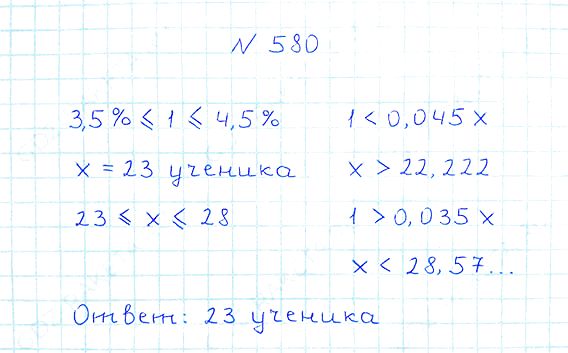 N 580
3,5% ⩽ 1 ⩽ 4,5%
x = 23 ученика
23 ⩽ x ⩽ 28
1 < 0,045 x
x > 22,222
1 > 0,035 x
x < 28,57...
Ответ: 23 ученика